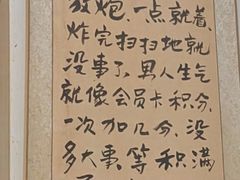 放炮，一点就着，
炸完扫扫地就
没事了，男人生气
就像会员卡积分，
一次加几分，没
多大事，等积满
了